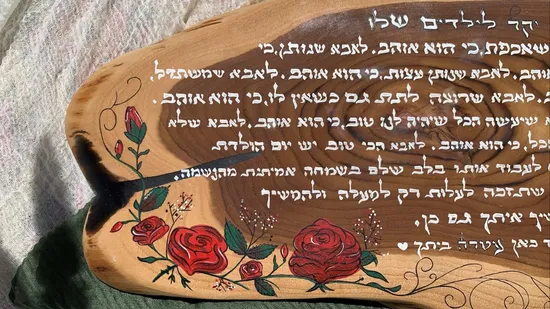 יקר לילדים שלו
שאכפת, כי הוא אוהב. לאבא שנותן, כי
אוהב. לאבא שנותן עצות, כי הוא אוהב. לאבא שמשתדל,
לאבא שרוצה לתת גם כשאין לו, כי הוא אוהב.
שיעשה הכל שיהיה לנו טוב, כי הוא אוהב. לאבא שלא
הכל, כי הוא אוהב. לאבא הכי טוב יש יום הולדת
לעבוד אותו בלב שלם בשמחה אמיתית מהנשמה.
שתזכה לעלות רק למעלה ולהמשיך
איתך גם כן.
כאן עטרה ביתך ♥